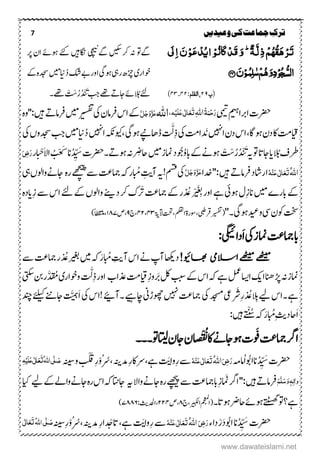 ترکِ جماعت کی وعیدیں 7
تَرْهَقُهُمْ ذِلَّةٌ ؕ وَ قَدْ كَانُوْا یُدْعَوْنَ اِلَى
تو گے نہ کر سکیں گے نیچی نگاہیں کئے ہوئے ان پر
السُّجُوْدِ وَ هُمْ سٰلِمُوْنَ۝
خواری چڑھ رہی ہوگی اور بے شک دُنیا میں سجدہ کے
(پ۲۹، القلم: ۴۲، ۴۳)
لئے بُلائے جاتے تھے جب تَنْدُرُسْت تھے۔
حضرت ابراہیم تیمی رَحْمَۃُ اللّٰہِ تَعَالٰی عَلَیْہ، اللّٰہ عَزَّ وَجَلَّ کے اس فرمان کی تفسیر میں فرماتے ہیں: ”وہ
قیامت کا دن ہوگا، اس دن انہیں ندامت کی ذِلَّت ڈھانپے ہوگی، کیونکہ انہیں دُنیا میں جب سجدوں کی
طرف بُلایا جاتا تو یہ تَنْدُرُسْت ہونے کے باوُجُود نماز میں حاضر نہ ہوتے تھے۔ حضرت سَیِّدُنا کَعْبُ الْاَحْبَار رَضِیَ
اللّٰہُ تَعَالٰی عَنْہ ارشاد فرماتے ہیں: ”خدا عَزَّ وَجَلَّ کی قسم! یہ آیتِ مُبارَکہ جماعت سے پیچھے رہ جانے والوں ہی
کے بارے میں نازِل ہوئی ہے اور بغیر عُذر کے جماعت تَرک کر دینے والوں کے لئے اس سے زیادہ
سخت کون سی وعید ہوگی۔“ (تفسیر قرطبی، سورۃ القلم، تحت الآیۃ: ۴۲، ۴۳، ج۹، ص۱۸۷، ملتقطاً)
باجماعت نماز کی ادائیگی:
میٹھے میٹھے اسلامی بھائیو! دیکھا آپ نے اس آیتِ مُبارَکہ میں بغیر عُذر جماعت سے
نماز نہ پڑھنا کیسا عمل ہے کہ اس کے سبب کل بَروزِ قیامت عذاب اور ذِلَّت و خواری مُقَدَّر بن سکتی
ہے۔ اس لئے بِلا عُذرِ شَرعی مسجد کی جماعت نہیں چھوڑنی چاہیے۔ آئیے! اس کی اَہَمِیَّت جاننے کیلئے چند
احادیثِ مُبارَکہ سُنتے ہیں:
اگر جماعت فوت ہو جانے کا نقصان جان لیتا تو۔۔۔
حضرت سَیِّدُنا ابُواُمامہ رَضِیَ اللّٰہُ تَعَالٰی عَنْہ سے رِوایَت ہے، سرکارِ مدینہ، سُرُورِ قَلْب و سینہ صَلَّی اللّٰہُ تَعَالٰی عَلَیْہِ
وَاٰلِہٖ وَسَلَّم فرماتے ہیں: ”اگر یہ نَمازِ باجماعت سے پیچھے رہ جانے والا جانتا کہ اس رہ جانے والے کے لیے کیا
ہے؟ تو گھسٹتے ہوئے حاضر ہوتا۔“ (المعجم الکبیر، ج۸، ص۲۲۴، الحدیث: ۷۸۸۶)
حضرت سَیِّدُنا ابُودرداء رَضِیَ اللّٰہُ تَعَالٰی عَنْہ سے رِوایَت ہے، تاجدارِ مدینہ، سُرُورِ سینہ صَلَّی اللّٰہُ تَعَالٰی
www.dawateislami.net